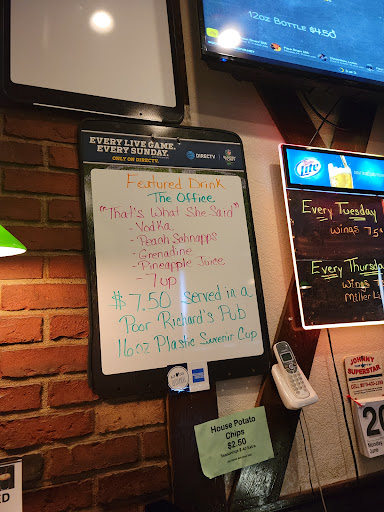 12oz Bottle $4.50
EVERY LIVE GAME.
EVERY SUNDAY.
ONLY ON DIRECTV.
DIRECTV
Featured Drink
The Office
"That's What She Said"
- Vodka
- Peach Schnapps
- Grenadine
- Pineapple Juice
- 7up
$7.50 Served in a
Poor Richard's Pub
16oz Plastic Suvenir Cup
Lite
Every Tuesday
Wings
Every Thursday
Wings
Miller L
House Potato
Chips
$2.50
JOHNNY
SUPERSTAR
Monday
ED